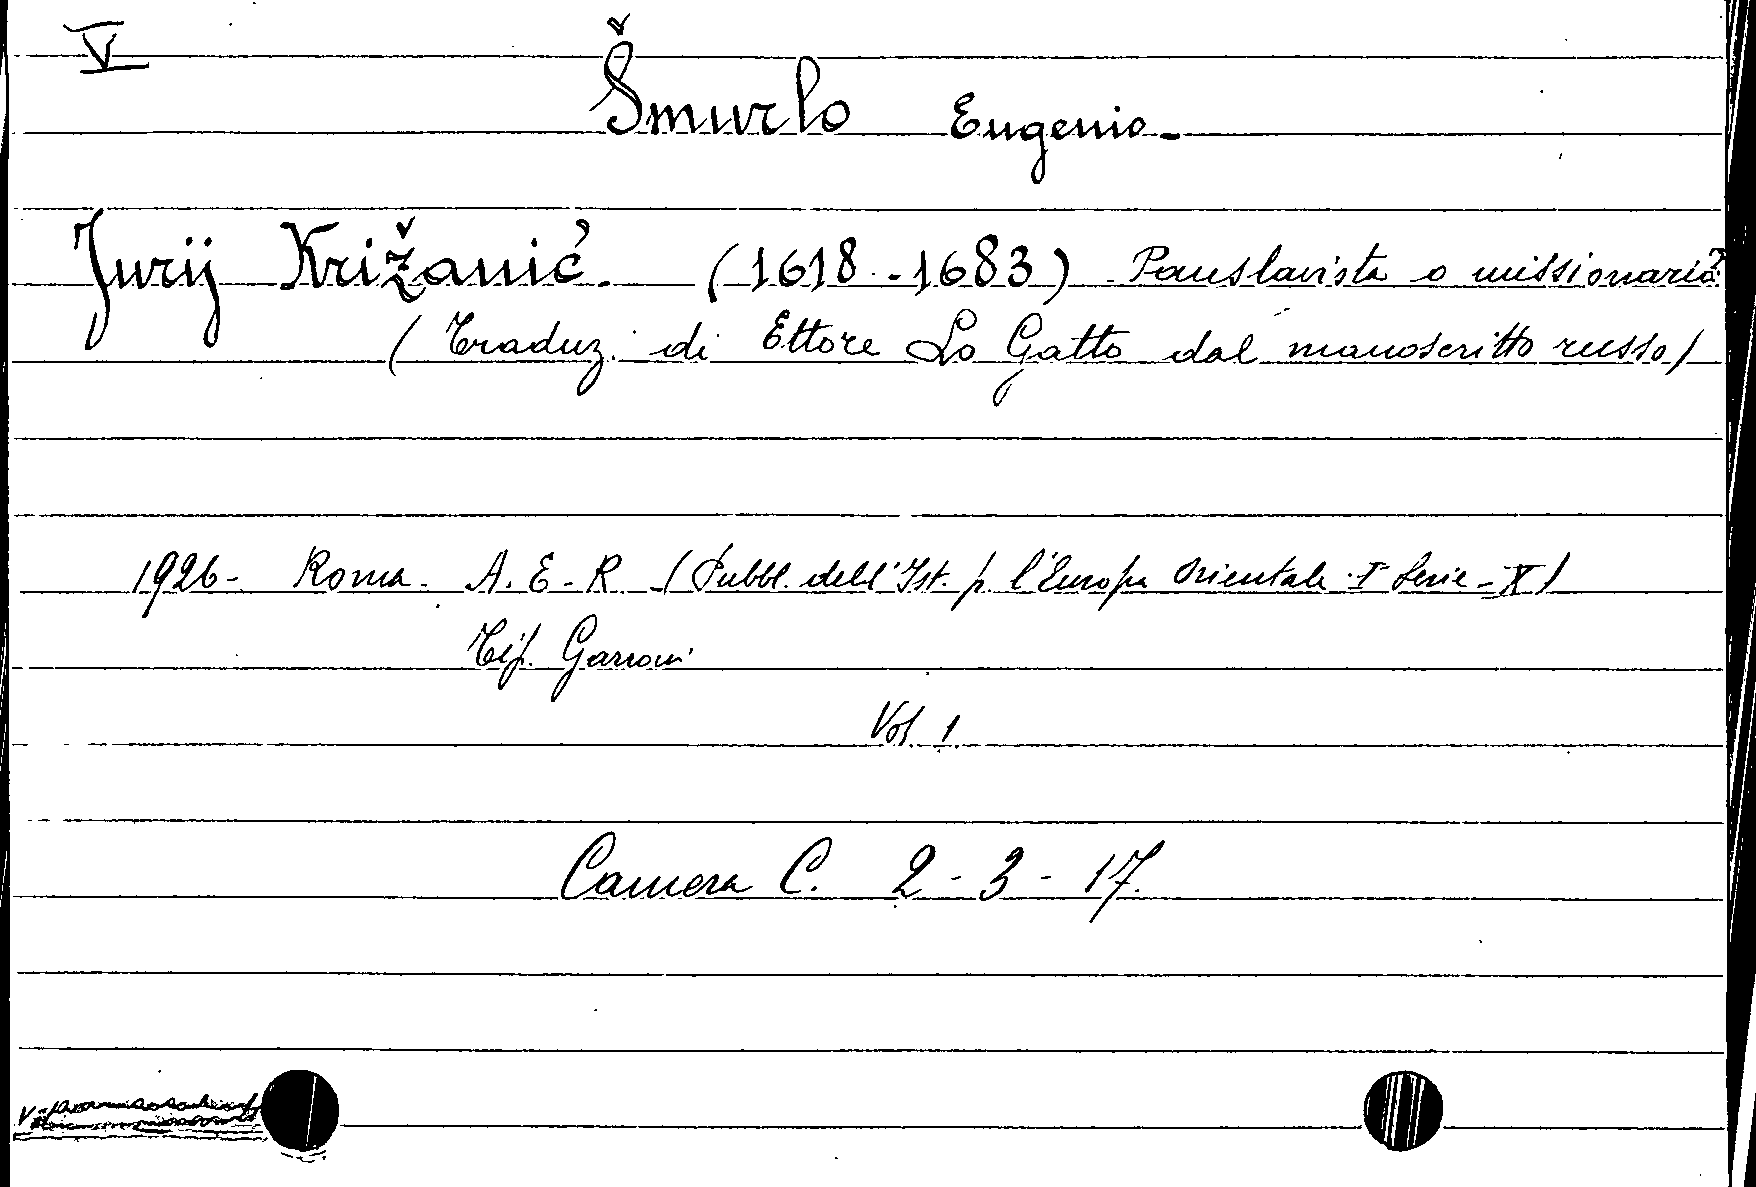 V
Šmurlo Eugenio-
Jurij Križanić. (1618-1683) Panslavista o missionario?
(Traduz. di Ettore Lo Gatto dal manoscritto russo)
1926- Roma. A.E-R (Pubbl. dell'Ist. p. l'Europa Orientale. I Serie-X)
Tip. Garroni
Vol. 1.
Camera C. 2-3-17.